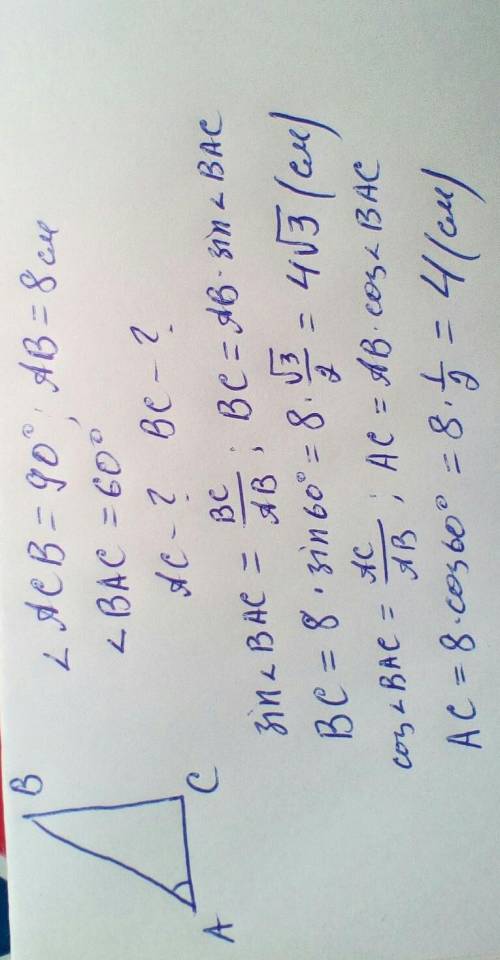 B
A
C
∠ACB = 90°; AB = 8 см
∠BAC = 60°
AC - ? BC - ?
sin∠BAC = BC/AB; BC = AB · sin∠BAC
BC = 8 · sin60° = 8 · √3/2 = 4√3 (см)
cos∠BAC = AC/AB; AC = AB · cos∠BAC
AC = 8 · cos60° = 8 · 1/2 = 4 (см)